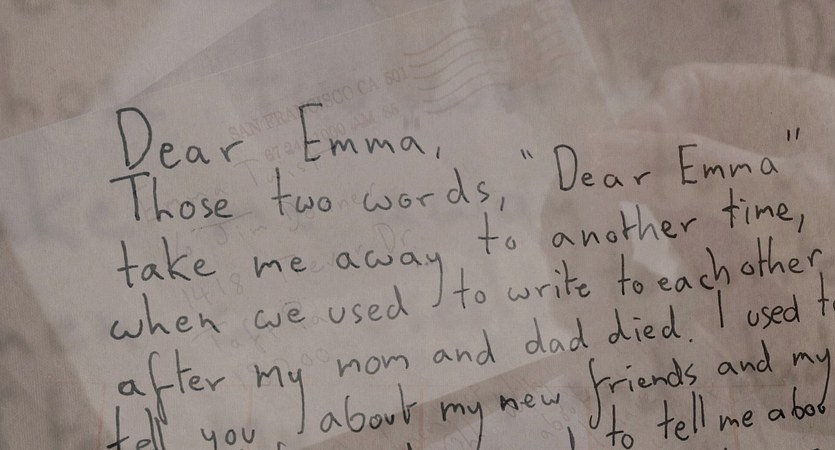 SAN FRANCISCO CA
Dear Emma,
Those two words, "Dear Emma"
take me away to another time,
when we used to write to each other
after my mom and dad died. I used to
tell you about my new friends and my
to tell me about